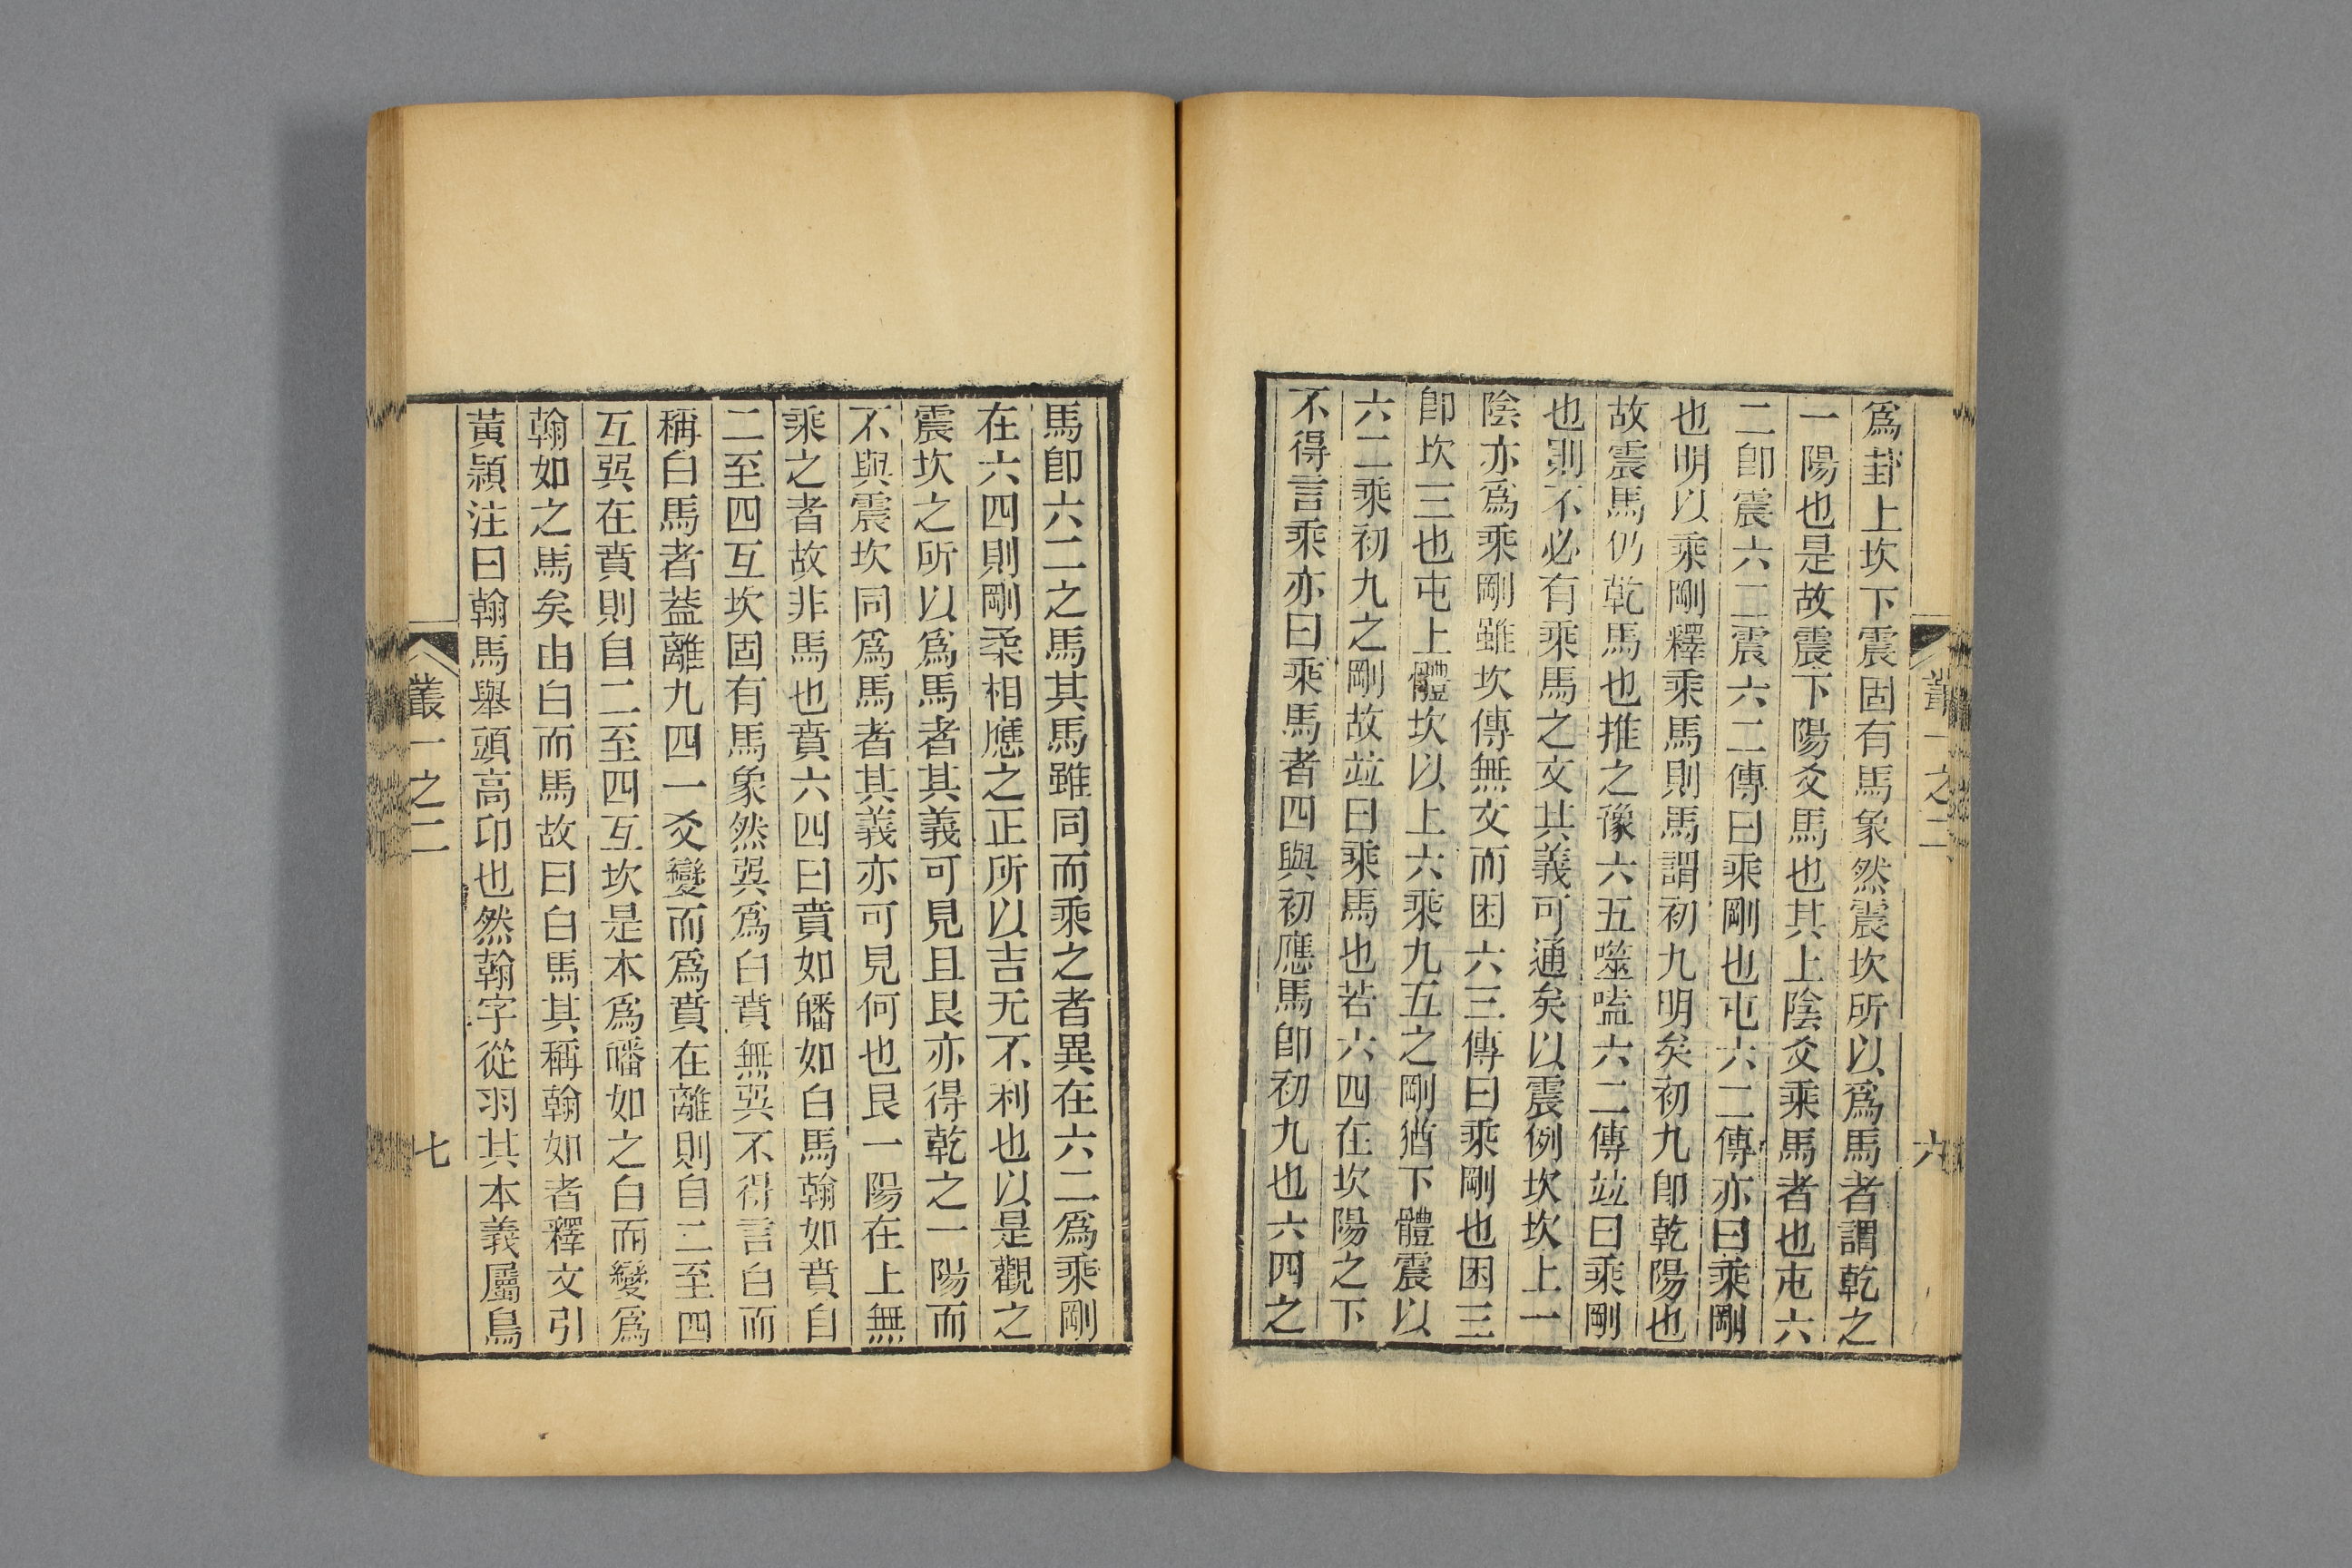 叢一之二
六
爲卦上坎下震固有馬象然震坎所以爲馬者謂乾之
一陽也是故震下陽爻馬也其上陰爻乘馬者也屯六
二卽震六二震六二傳曰乘剛也屯六二傳亦曰乘剛
也明以乘剛釋乘馬則馬謂初九明矣初九卽乾陽也
故震馬仍乾馬也推之豫六五噬嗑六二傳竝曰乘剛
也則不必有乘馬之文其義可通矣以震例坎坎上一
陰亦爲乘剛雖坎傳無文而困六三傳曰乘剛也困三
卽坎三也屯上體坎以上六乘九五之剛猶下體震以
六二乘初九之剛故竝曰乘馬也若六四在坎陽之下
不得言乘亦曰乘馬者四與初應馬卽初九也六四之
馬卽六二之馬其馬雖同而乘之者異在六二爲乘剛
在六四則剛柔相應之正所以吉无不利也以是觀之
震坎之所以爲馬者其義可見且艮亦得乾之一陽而
不與震坎同爲馬者其義亦可見何也艮一陽在上無
乘之者故非馬也賁六四曰賁如皤如白馬翰如賁自
二至四互坎固有馬象然巽爲白賁無巽不得言白而
稱白馬者葢離九四一爻變而爲賁在離則自二至四
互巽在賁則自二至四互坎是本爲皤如之白而變爲
翰如之馬矣由白而馬故曰白馬其稱翰如者釋文引
黃潁注曰翰馬舉頭高卬也然翰字從羽其本義屬鳥
叢一之二
七